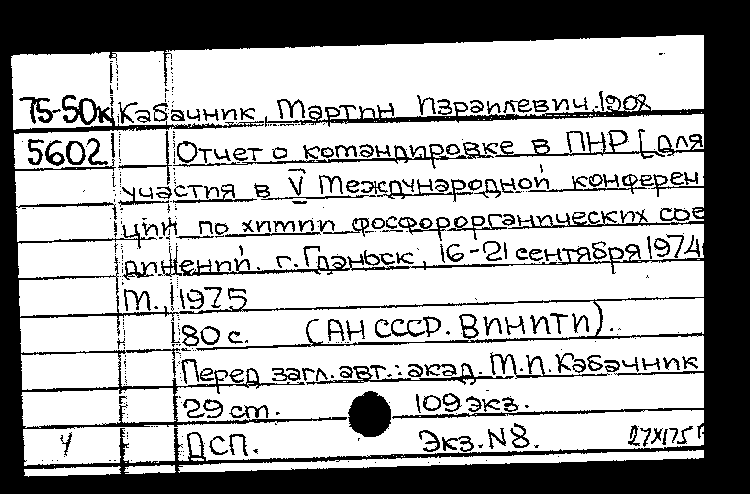 75-50к Кабачник, Мартин Израилевич. 1908
5602 Отчет о командировке в ПНР [для
участия в V Международной конферен-
ции по химии фосфорорганических сое-
динений. г. Гданьск, 16-21 сентября 1974
М., 1975
80 с. (АН СССР. ВИНИТИ).
Перед загл. авт.: акад. М.И. Кабачник
29 ст. 109 экз.
ч ДСП. Экз. N 8. 27X175